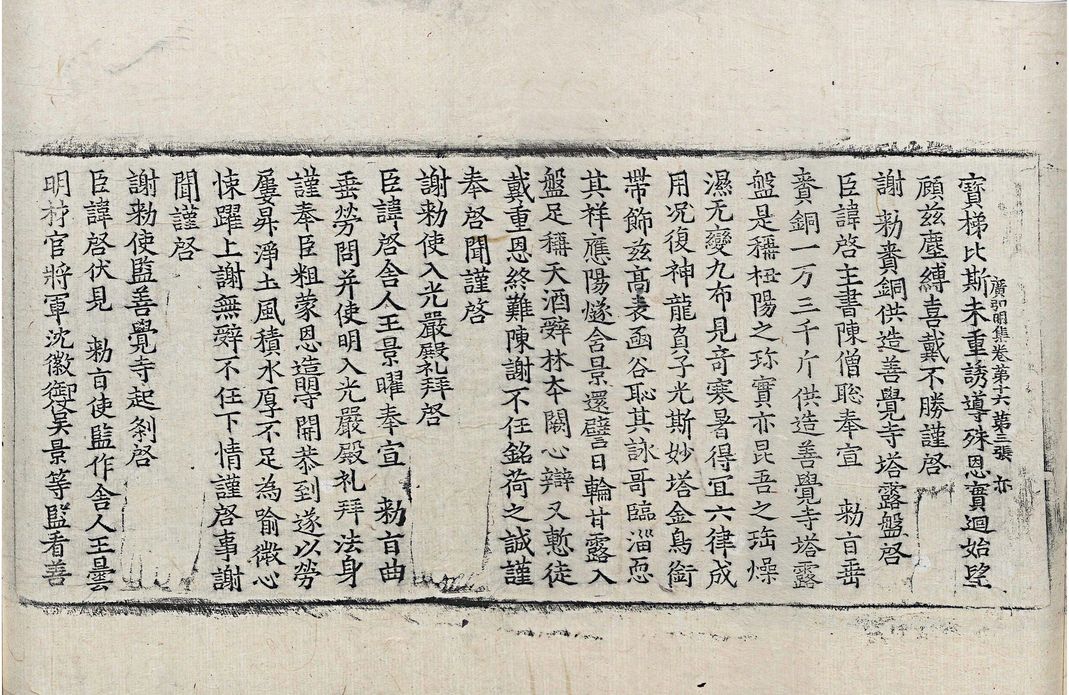 廣弘明集卷第十六 第三張 亦
寳梯比斯未重誘導殊恩實迴始望
顧兹塵縛喜戴不勝謹啓
謝 勑賚銅供造善覺寺塔露盤啓
臣諱啓主書陳僧聡奉宣 勑旨垂
賚銅一万三千斤供造善覺寺塔露
盤是稱杻陽之珎實亦昆吾之珤燥
濕无變九布見竒寒暑得冝六律成
用况復神龍負子光斯妙塔金鳥銜
帶飾兹髙表函谷恥其詠哥臨淄恧
其祥應陽燧含景還譬日輪甘露入
盤足稱天酒辤林夲闕心辯又慙徒
戴重恩終難陳謝不任銘荷之誠謹
奉啓聞謹啓
謝勑使入光嚴殿礼拜啓
臣諱啓舎人王景曜奉宣 勑旨曲
垂勞問并使明入光嚴殿礼拜法身
謹奉臣粗蒙恩造明䓁開恭到遂以勞
屢昇淨土風積水厚不足為喻微心
悚躍上謝無辤不任下情謹啓事謝
聞謹啓
謝勑使監善覺寺起刹啓
臣諱啓伏見 勑旨使監作舎人王曇
明材官將軍沈徽御僕吴景等監看善